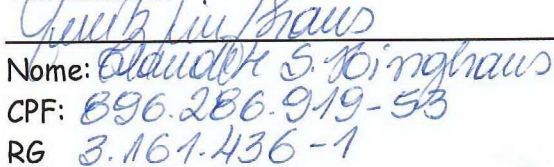 Nome: Claudete S. Hinghaus
CPF: 896.286.919-53
RG 3.161.436-1